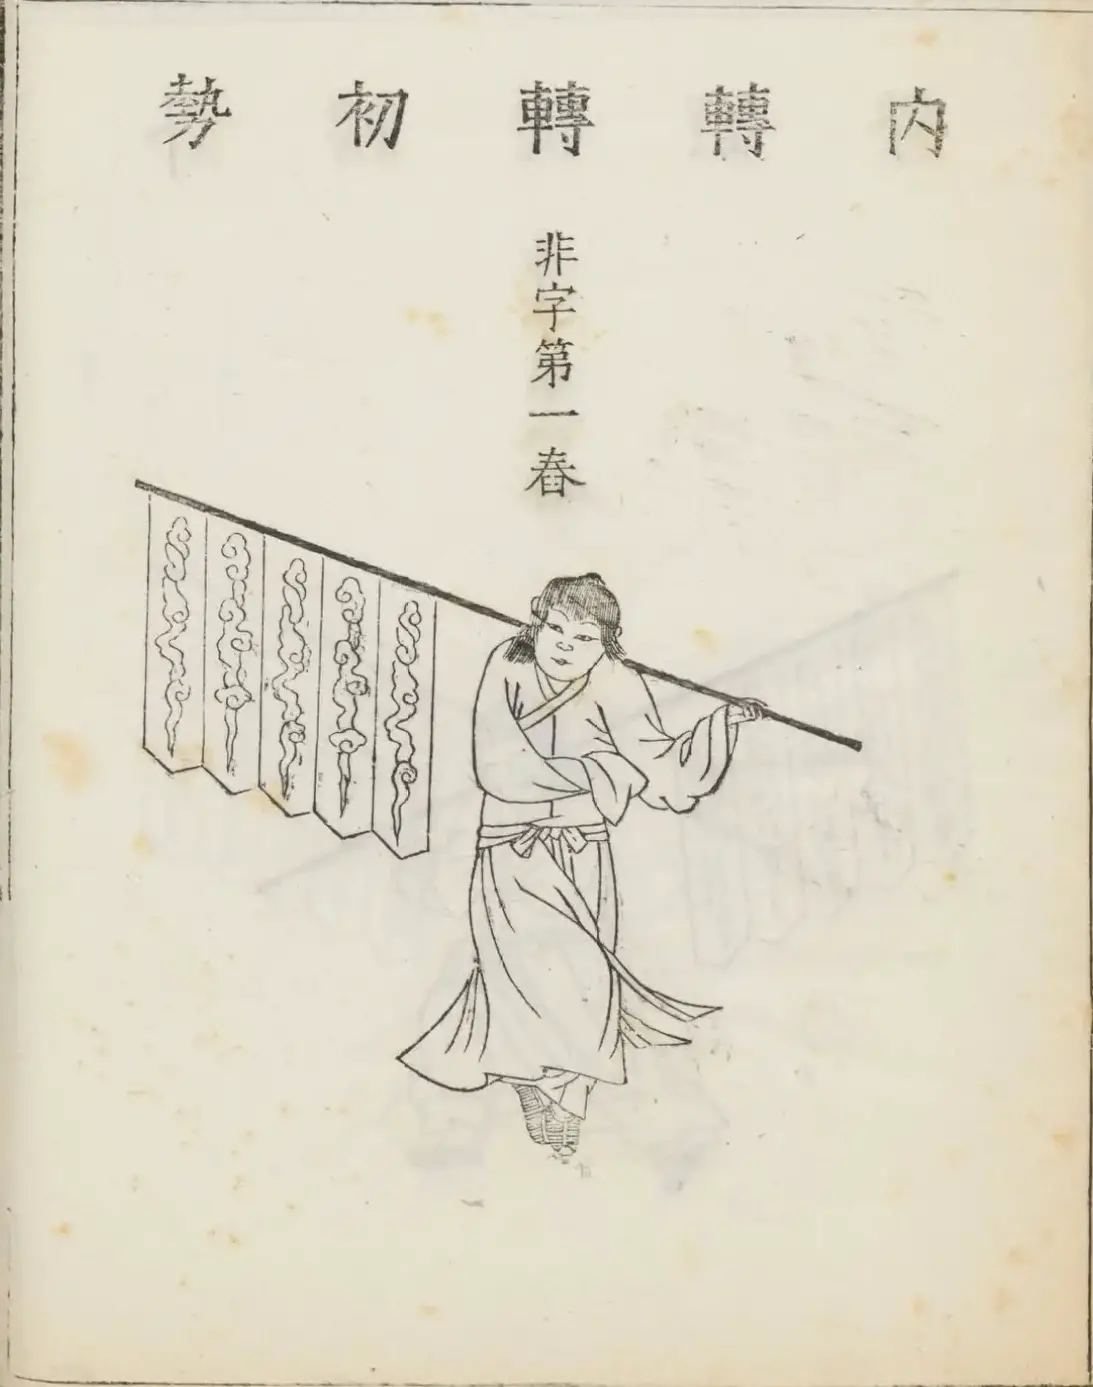 內轉轉初勢
非字第一舂